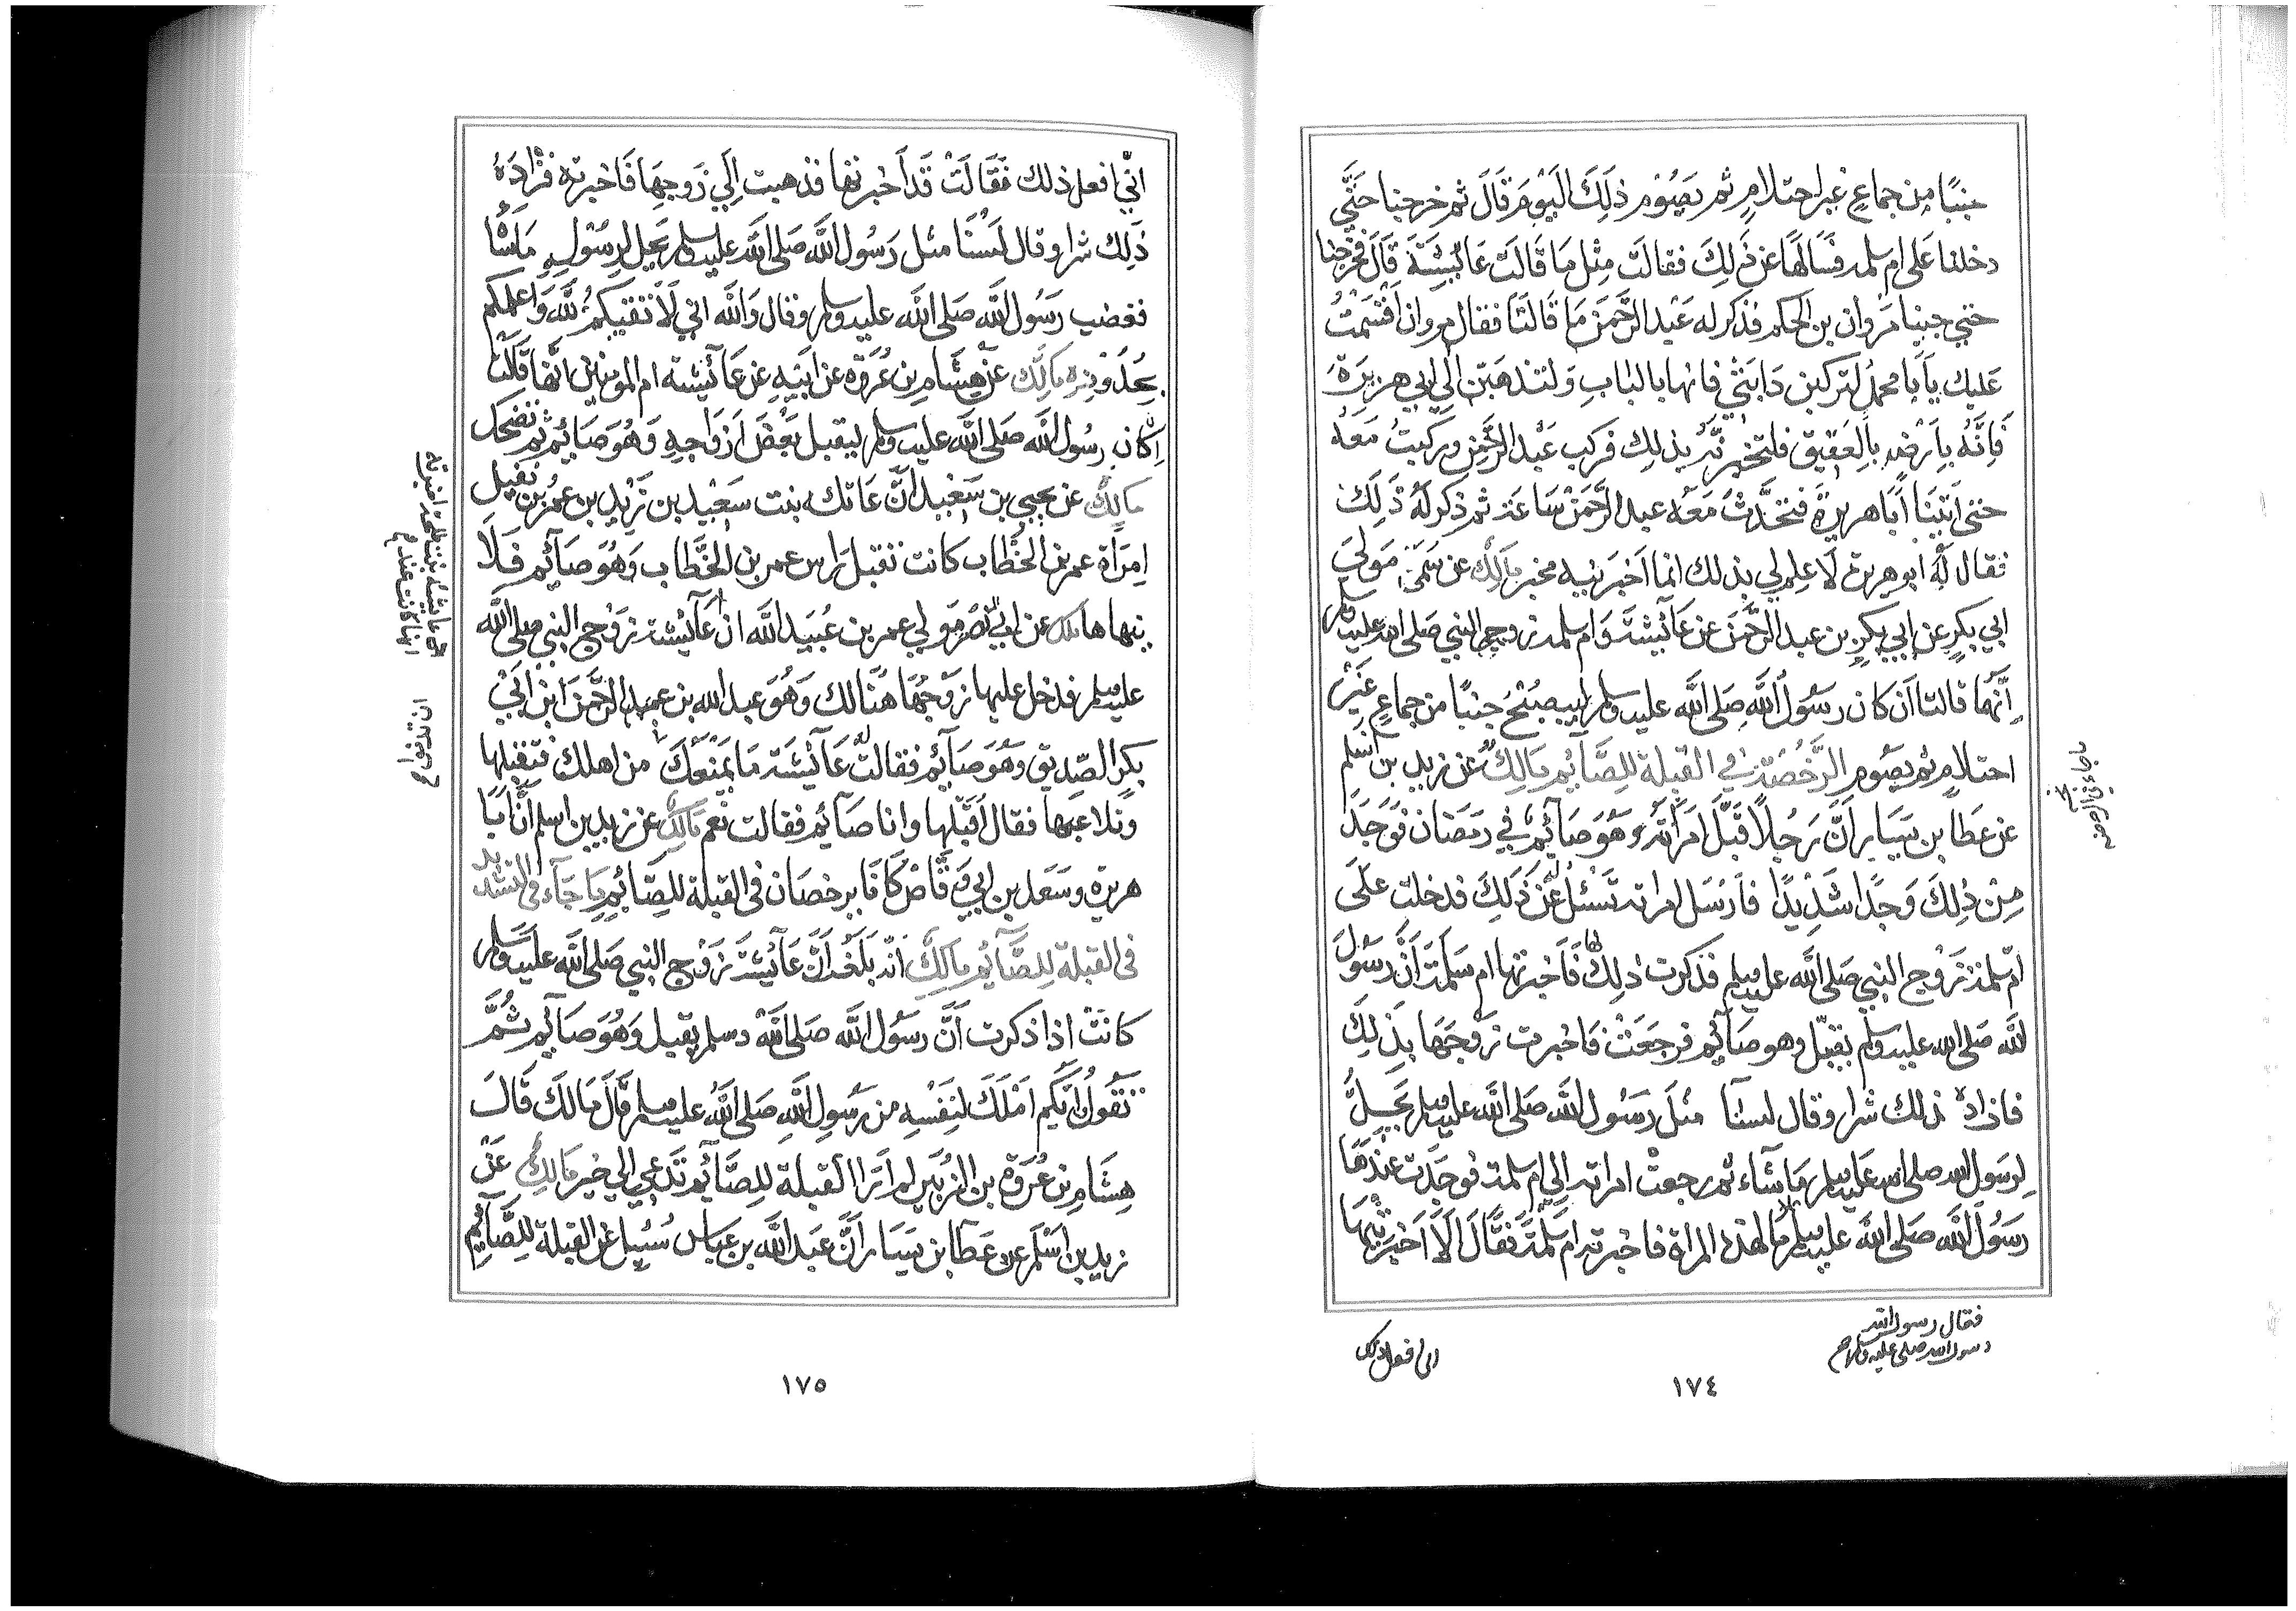 جنبًا مِن جماعٍ غير احتلامٍ ثم يصُوْم ذلِكَ اليَوْمَ قَالَ ثم خرجنا حَتَّي
دخلنا عَلى ام سلمة فَسَألَهَا عن ذَلِكَ فقالتَ مِثْل مَا قَالَتَ عَائِشَة قَالَ فخَرجنا
حتي جينا مَروان بن الحكم فذكر له عَبْد الرَّحمَنَ مَا قَالَتَا فقال مروان اَقْسَمْتُ
عَليك يَآبَا محمدٍ لتركبن دَابَتْي فانها بالبابِ وَلتذهبَن اِلَى ابي هريرَةَ
فَاِنَّهُ بِاَرْضِه بِالعَقِيق فلتخبرنَّهُ بذلِك فركب عَبْد الرَّحمنِ وركبتُ مَعَهُ
حتى اَتينَا اَبَا هريرةَ فتحَدَّثَ مَعَه عبد الرَّحمَنْ سَاعَة ثم ذكر لَهُ ذَلِكَ
فقال لَهُ ابو هريرة لَا عِلم لي بذلك انما اَخبرَنيه مخبر مَالِك عن سُمَيّ مَولى
ابي بكرٍ عن ابي بكرِ بن عبد الرَّحمَنَ عن عَآئِشَة وَام سلمة زوجي النبي صَلى الله عليه وسلم
اِنَّهُمَا قالتا اَن كان رسُوْلُ اللَّهِ صَلى اللَّه عليه وسلم ليصبَحُ جنبًا من جماعٍ غَيرِ
احتلامٍ ثم يصَوم الرُّخْصَة في القبلة للِصَّائِم مَالِكٌ عن زيد بن اَسْلم
عن عَطَا بن يَسَار اَنَّ رَجُلاً قَبَّلَ امرَأتَه وَهوَ صَائِمٌ في رمَضَان فوَجَدَ
مِنْ ذلِكَ وَجدًا شَدِيدًا فاَرْسَل امراته تَسْئَلُ لَه عَنْ ذَلِكَ فدخلت عَلَى
ام سلمة زَوْج النبي صَلى اللَّه عليه وسلم فذكرت ذلِكَ لها فَاَخبرتها ام سَلمَةَ اَنَّ رسُوْلَ
اللَّه صَلى الله عليه وسلم يقبّل وهو صَآئِم فرجَعَتْ فاخبرت زَوْجَهَا بِذَلِكَ
فاذادهَ ذلك شرا وقال لسنا مثلَ رسُول اللَّه صَلى اللَّه عليه وسلم يُحِلُّ
لِرسَول الله صلى الله عَليه وسلم مَا شَآءَ ثم رجعتْ امراته اِلي ام سلمة فوجَدَت عندَهَا
رَسُوْل اللَّه صَلى اللَّه عليه وسلم مَا لهذه المراة فاخبرته ام سَلمَةَ فقَالَ اَلَا اَخبرتِيهَا
فقال رسول الله
رسول الله صلى عليه وسلم صح
اني افعل ذلك
١٧٤
انّي افعل ذلك فَقَالَتْ قَد اَخبرتها فذهبت اِلَي زَوجِهَا فَاخبرته فزَادَهُ
ذَلِك شرا وقال لَسْنَا مثل رَسُول اللَّه صَلى اللَّه عليه وسلم يَحِل لِرسُولِه مَا شَآءَ
فغضب رَسُول اللَّه صَلى اللَّه عليه وسلم وقال وَاللَّه اني لَاَتقيكُم للَّه وَاعلمكم
بحُدُودِه مَالِك عَن هِشَام بن عُروَة عن ابيه عن عَآئِشة ام المومنين انَّها قَالَتْ
اِن كان رسُول اللَّه صَلى اللَّه عليه وسلم ليقبل بَعْضَ اَزوَاجِهِ وَهُوَ صَائِم ثم تضحكُ
مَالِكٌ عن يحيي بن سَعْيد اَنَّ عَاتكه بنت سَعْيد بن زَيْد بن عمرو بن نفيل
امرَاة عمر بن الخطاب كانت تقبل رَاس عمر بن الخَطاب وَهُوَ صَآئِم فَلَا
ينهاها مَالِك عن ابي النضر مَولي عمر بن عُبَيد اللَّه ان عَآئِشة زَوْج النبي صَلى اللَّه
عليه وسلم فدخل عليها زَوْجُهَا هُنَالك وَهُوَ عبد الله بن عبد الرَّحمَنَ ابن ابَيْ
بكرٍ الصِّدِيق وهوَ صَآئِم فقالت له عَآئِشَة مَا يَمنَعُكَ من اهلك فتقبلها
وتلاعبها فقال اُقَبِّلها وانا صَآئِم فقالت نعم مَالِك عن زيد بن اسلم اَنَّ اَبَا
هريرة وسَعَد بن ابي وَقَاص كَانَا يرخصَان في القبلة للِصَّائِم مَا جَآءَ في التشديد
في القبلة للِصَّآئِم مَالِكٌ انّه بَلَغَه اَنَّ عَآئِشَةَ زَوْج النبي صَلى اللَّه عليه وسلم
كانَتْ اذا ذكرت اَنَّ رسُول اللَّه صَلى اللَّه وسلم يقبل وَهُوَ صَآئِم ثُمَّ
تقُولُ اَيُّكُم اَمْلَكُ لنِفْسِهِ من رسُولِ اللَّه صَلى اللَّهُ عليه وسلم قَالَ مَالك قَالَ
هِشَام بن عُروَة بن الزُبَير لم اَرَ القبلة للِصَّآئِم تَدعي الي خير مَالِكٌ عَنْ
زيد بن اَسْلَم عن عَطَا بن يَسَار اَنَّ عَبد اللَّه بن عَباس سُئِل عن القبلة للِصَّآئِم
عن عائشة بنت طلحة اخبرته
انها كانت عند
١٧٥